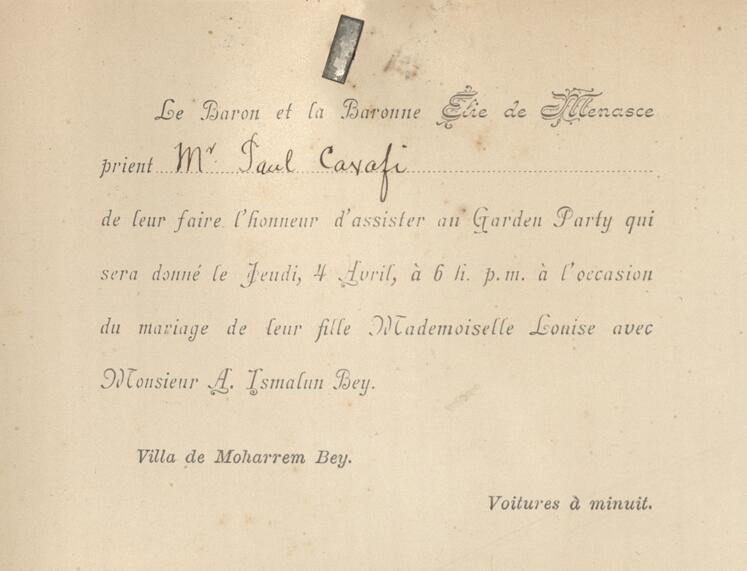 Le Baron et la Baronne Elie de Menasce
prient Mr Paul Cavafi
de leur faire l'honneur d'assister au Garden Party qui
sera donné le Jeudi, 4 Avril, à 6 h. p.m. à l'occasion
du mariage de leur fille Mademoiselle Louise avec
Monsieur A. Ismalun Bey.
Villa de Moharrem Bey.
Voitures à minuit.